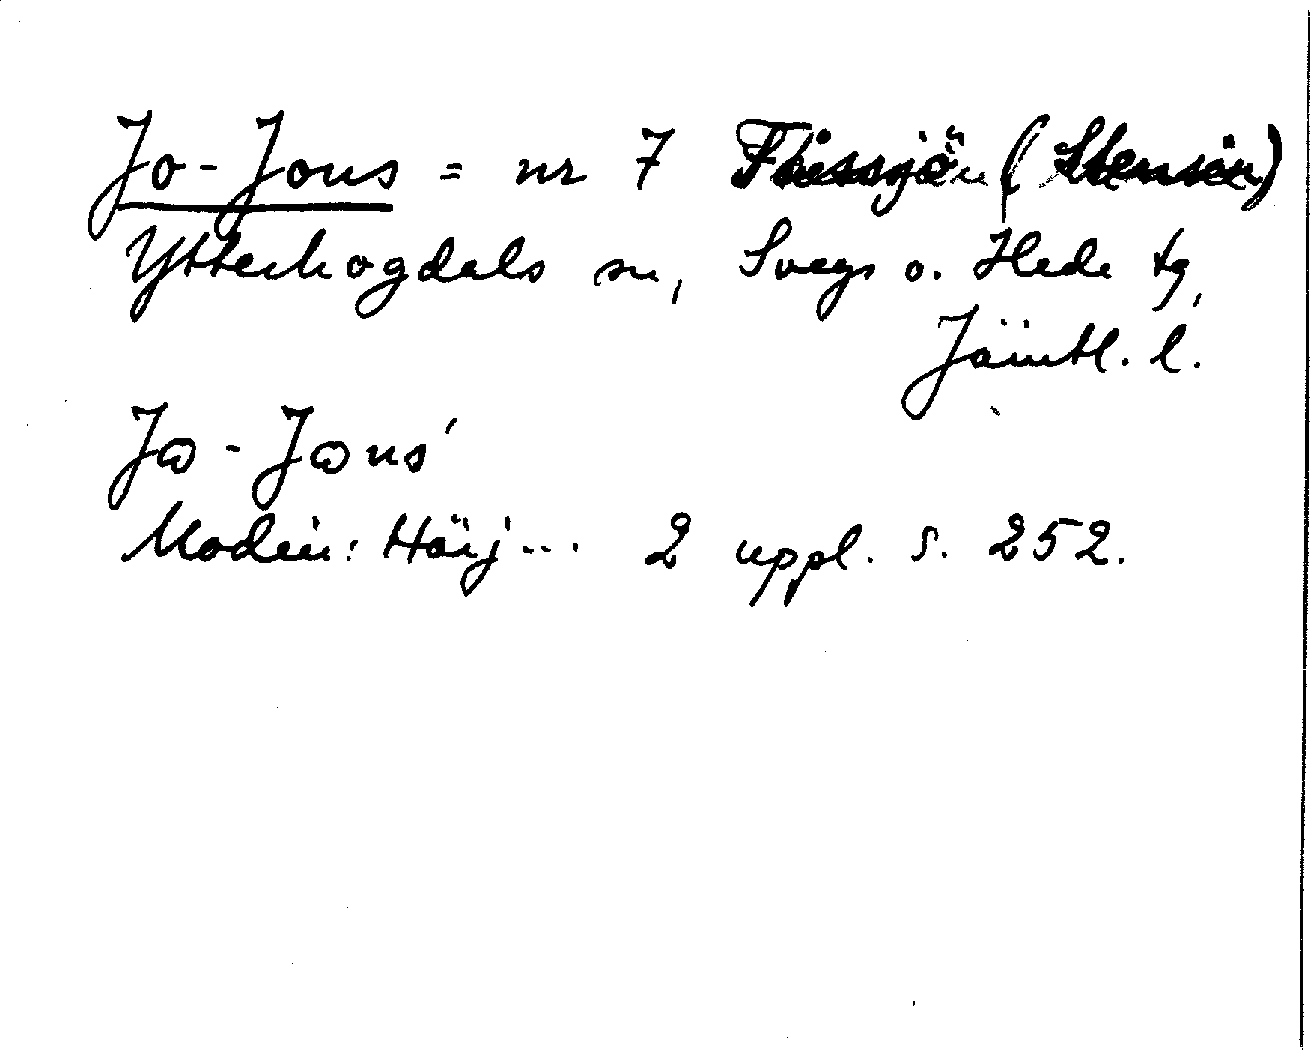 Jo-Jons = nr 7 Flässjön (Stensön)
Ytterhogdals sn, Svegs o. Hede tg,
Jämtl. l.
Jɷ-Jɷns'
Modin: Härj... 2 uppl. s. 252.